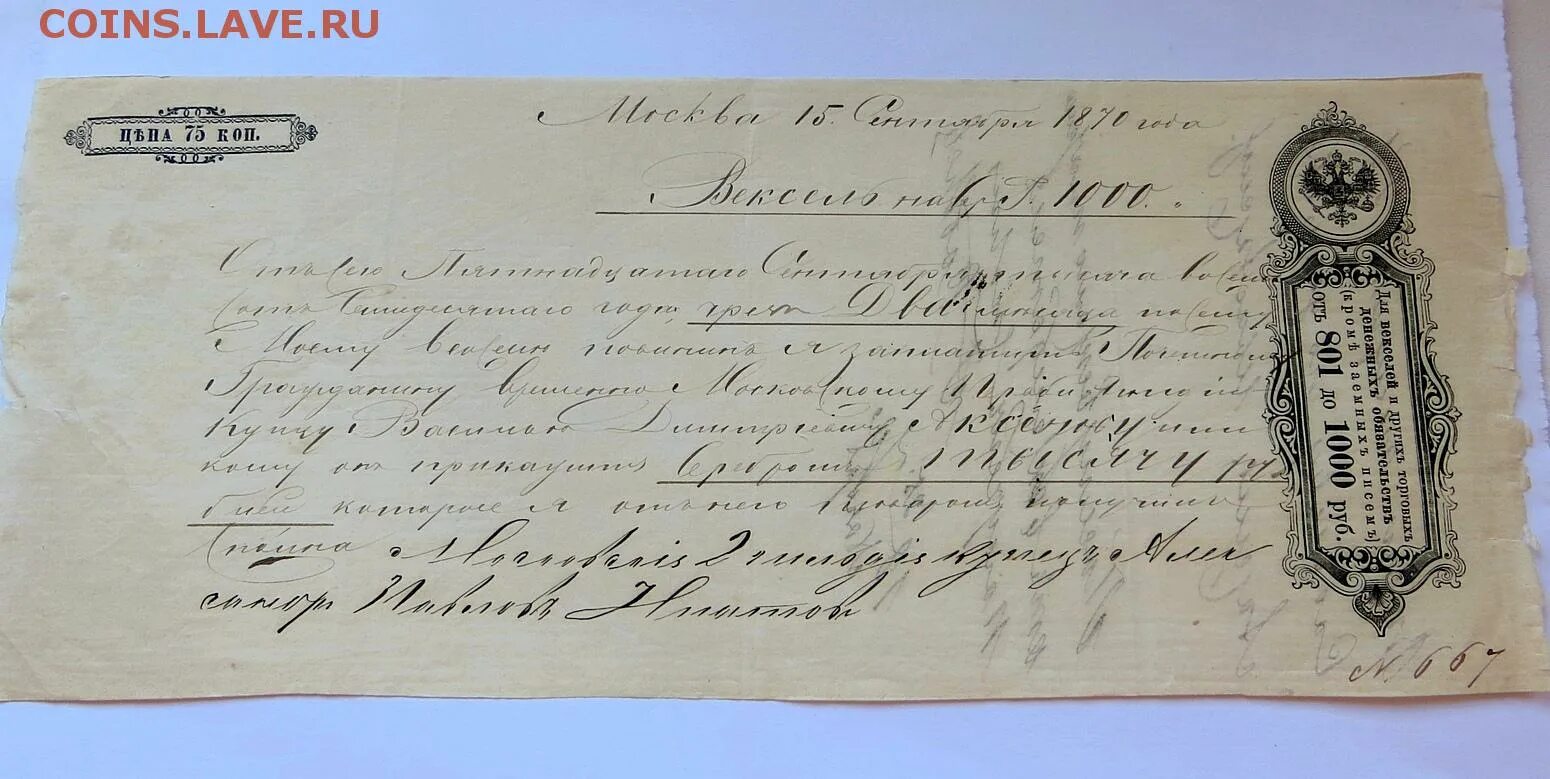 COINS.LAVE.RU
ЦѢНА 75 КОП.
Москва 15. Сентября 1870 года
Вексель на 1000.
Отъ сего Пятнадцатаго Сентября тысяча восем
сотъ Семидесятаго года чрезъ Двѣнадцать по сему
Моему векселю повиненъ я заплатить Почетному
Гражданину временно Московскому 1й гильдіи
Купцу Василью Дмитріевичу Аксенову или
кому онъ прикажетъ Серебромъ ТЫСЯЧУ ру
блей которые я отъ него получилъ
сполна Московскій 2 гильдіи купецъ Алек
сандр Павловъ
Для векселей и другихъ торговыхъ
денежныхъ обязательствъ
(кромѣ заемныхъ писемъ)
отъ 801 до 1000 руб.
№ 667